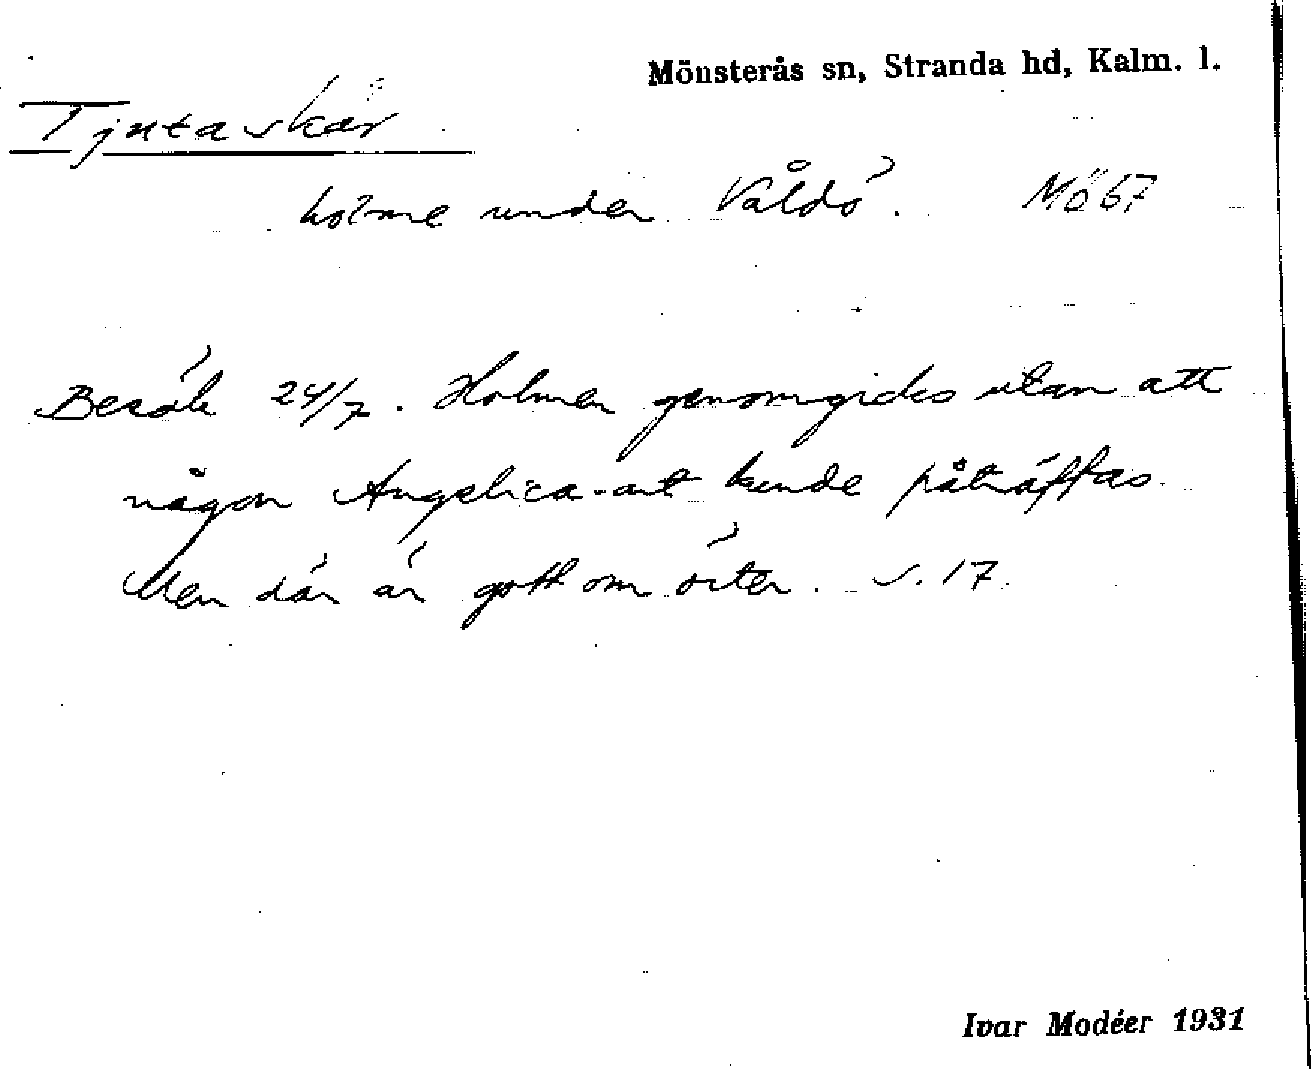 Mönsterås sn, Stranda hd, Kalm. l.
Tjutaskär
holme under Våldö. Mö 67
Besök 24/7. Holmen genomgicks utan att
någon Angelica-art kunde påträffas.
Men där är gott om örter. s. 17.
Ivar Modéer 1931